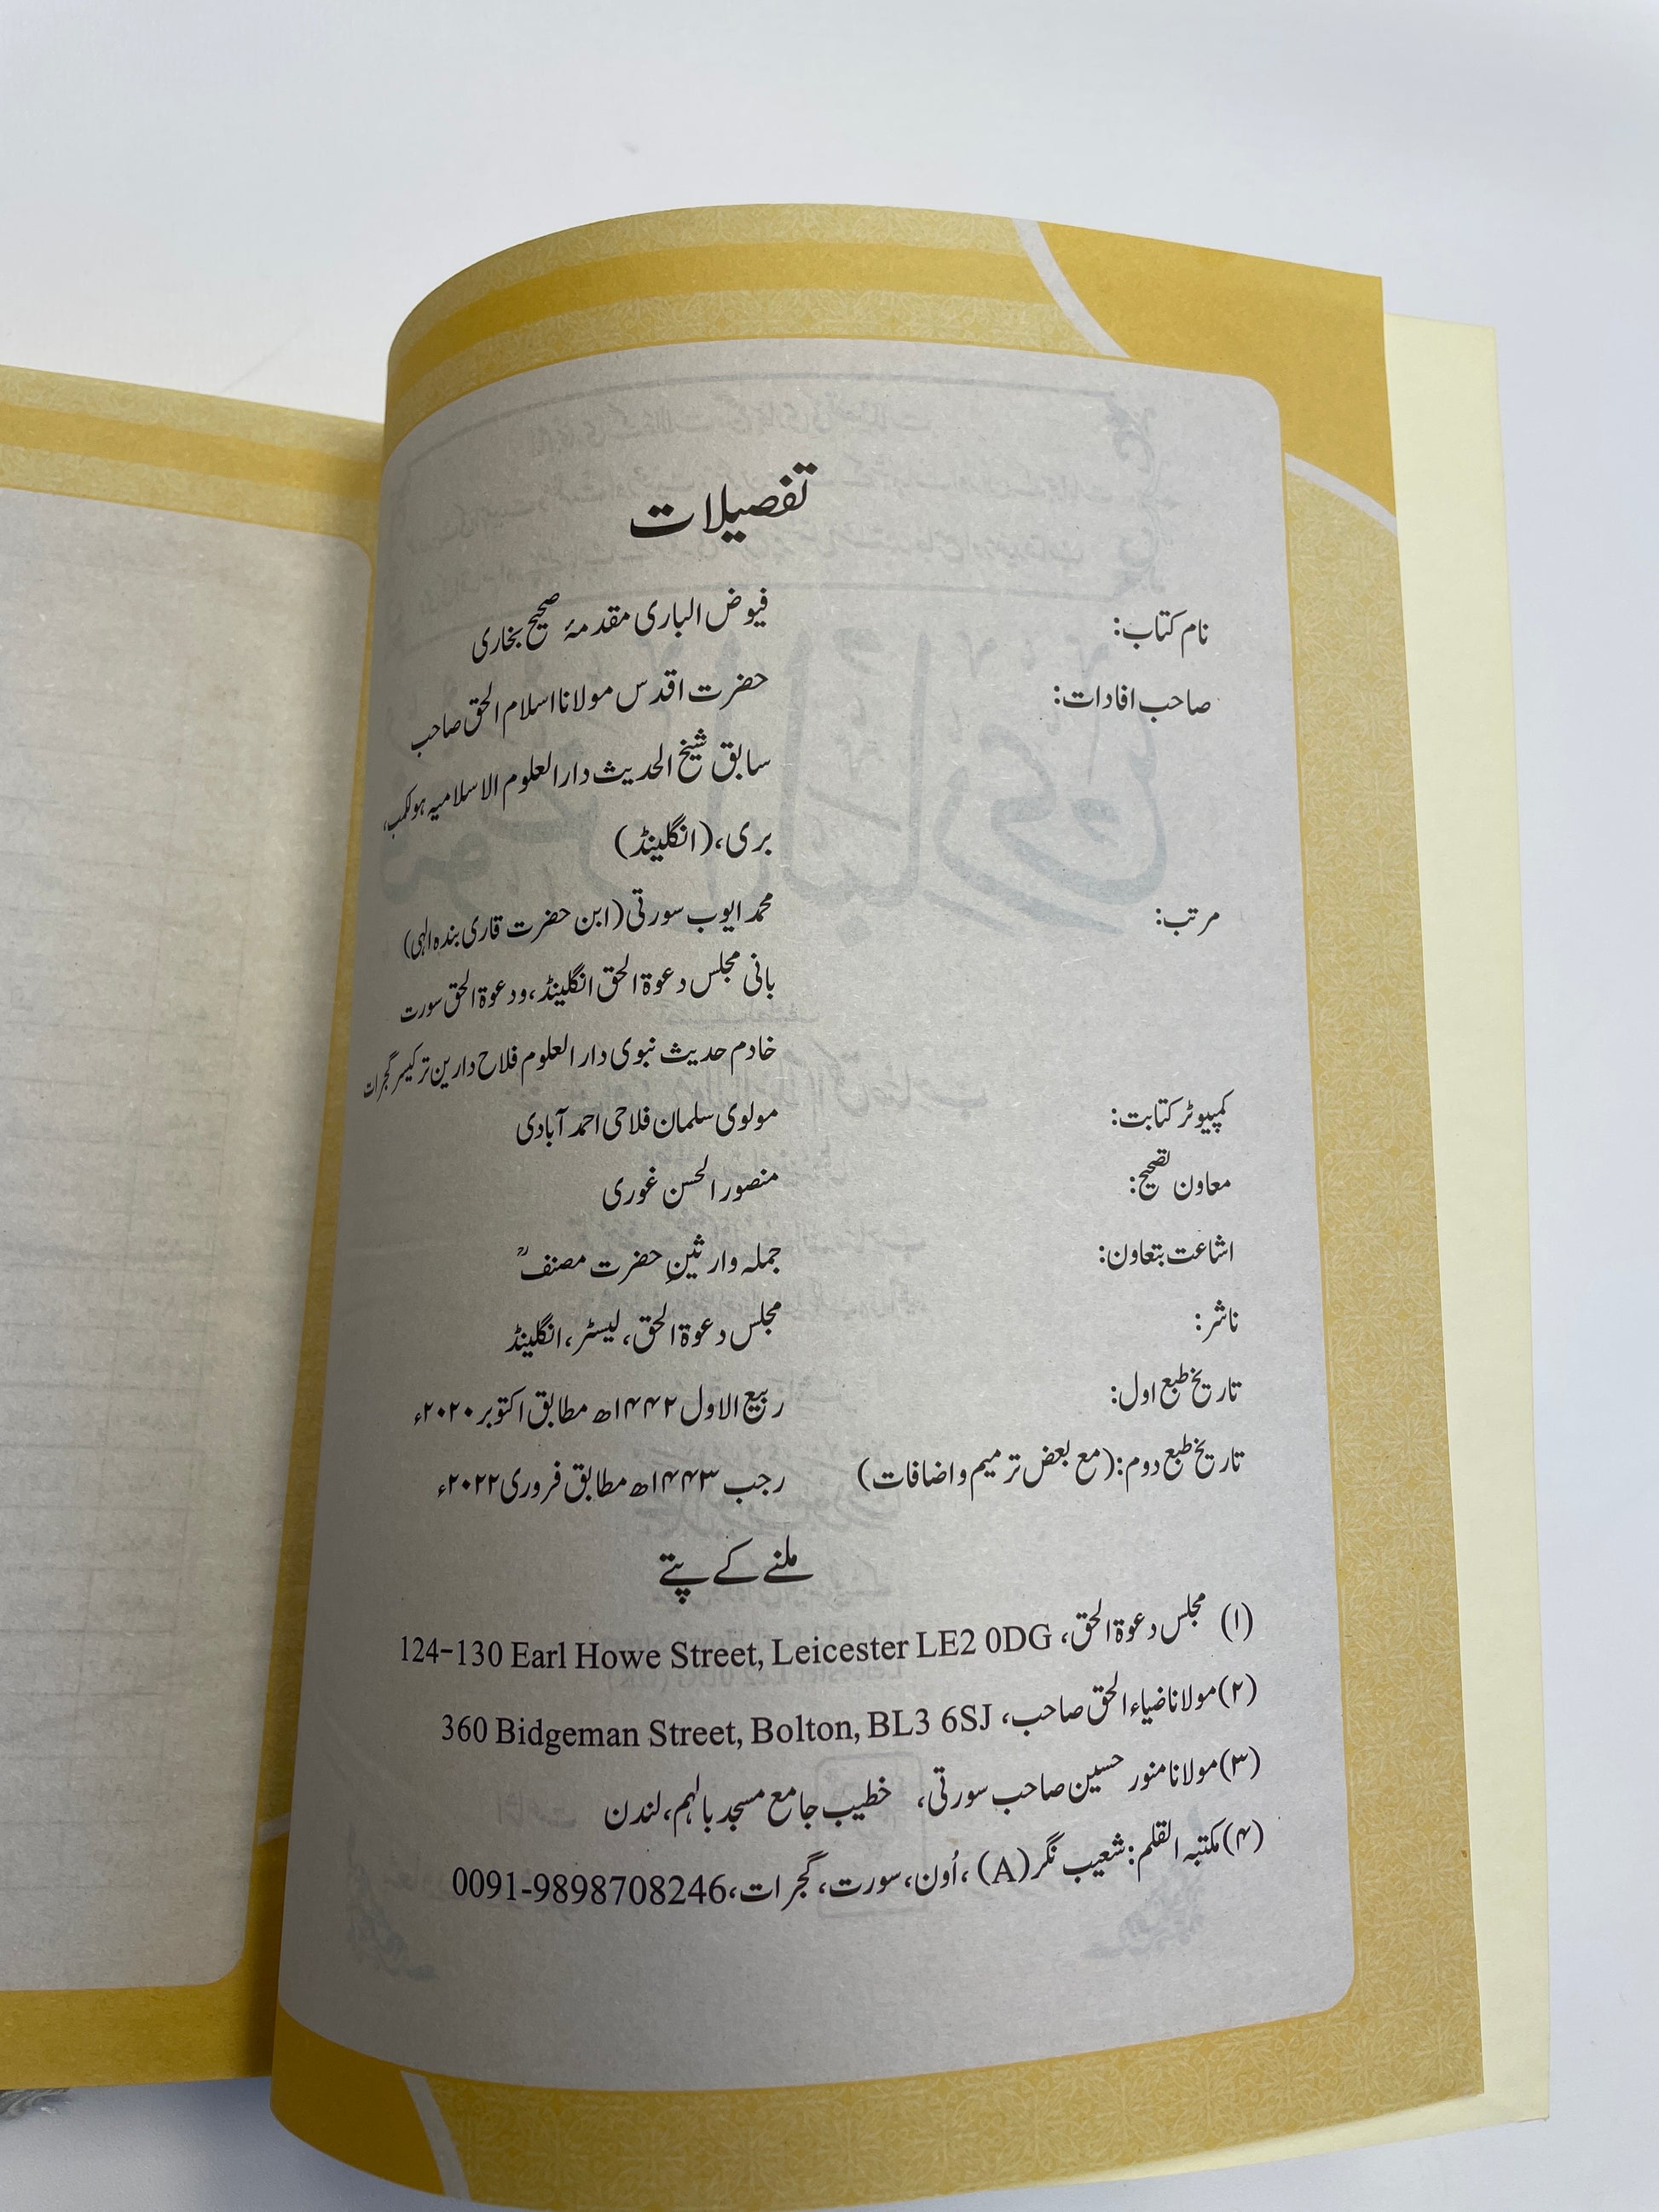 تفصیلات
نام کتاب: فیوض الباری مقدمۂ صحیح بخاری
صاحب افادات: حضرت اقدس مولانا اسلام الحق صاحب
سابق شیخ الحدیث دارالعلوم الاسلامیہ ہولکمب،
بری، (انگلینڈ)
مرتب: محمد ایوب سورتی (ابن حضرت قاری بندہ الٰہی)
بانی مجلس دعوۃ الحق انگلینڈ، ودعوۃ الحق سورت
خادم حدیث نبوی دار العلوم فلاح دارین ترکیسر گجرات
کمپیوٹر کتابت: مولوی سلمان فلاحی احمد آبادی
معاون تصحیح: منصور الحسن غوری
اشاعت بتعاون: جملہ وارثینِ حضرت مصنفؒ
ناشر: مجلس دعوۃ الحق، لیسٹر، انگلینڈ
تاریخ طبع اول: ربیع الاول ۱۴۴۲ھ مطابق اکتوبر ۲۰۲۰ء
تاریخ طبع دوم: (مع بعض ترمیم و اضافات) رجب ۱۴۴۳ھ مطابق فروری ۲۰۲۲ء
ملنے کے پتے
(۱) مجلس دعوۃ الحق، 124-130 Earl Howe Street, Leicester LE2 0DG
(۲) مولانا ضیاء الحق صاحب، 360 Bidgeman Street, Bolton, BL3 6SJ
(۳) مولانا منور حسین صاحب سورتی، خطیب جامع مسجد بالہم، لندن
(۴) مکتبہ القلم: شعیب نگر (A)، اُون، سورت، گجرات، 0091-9898708246